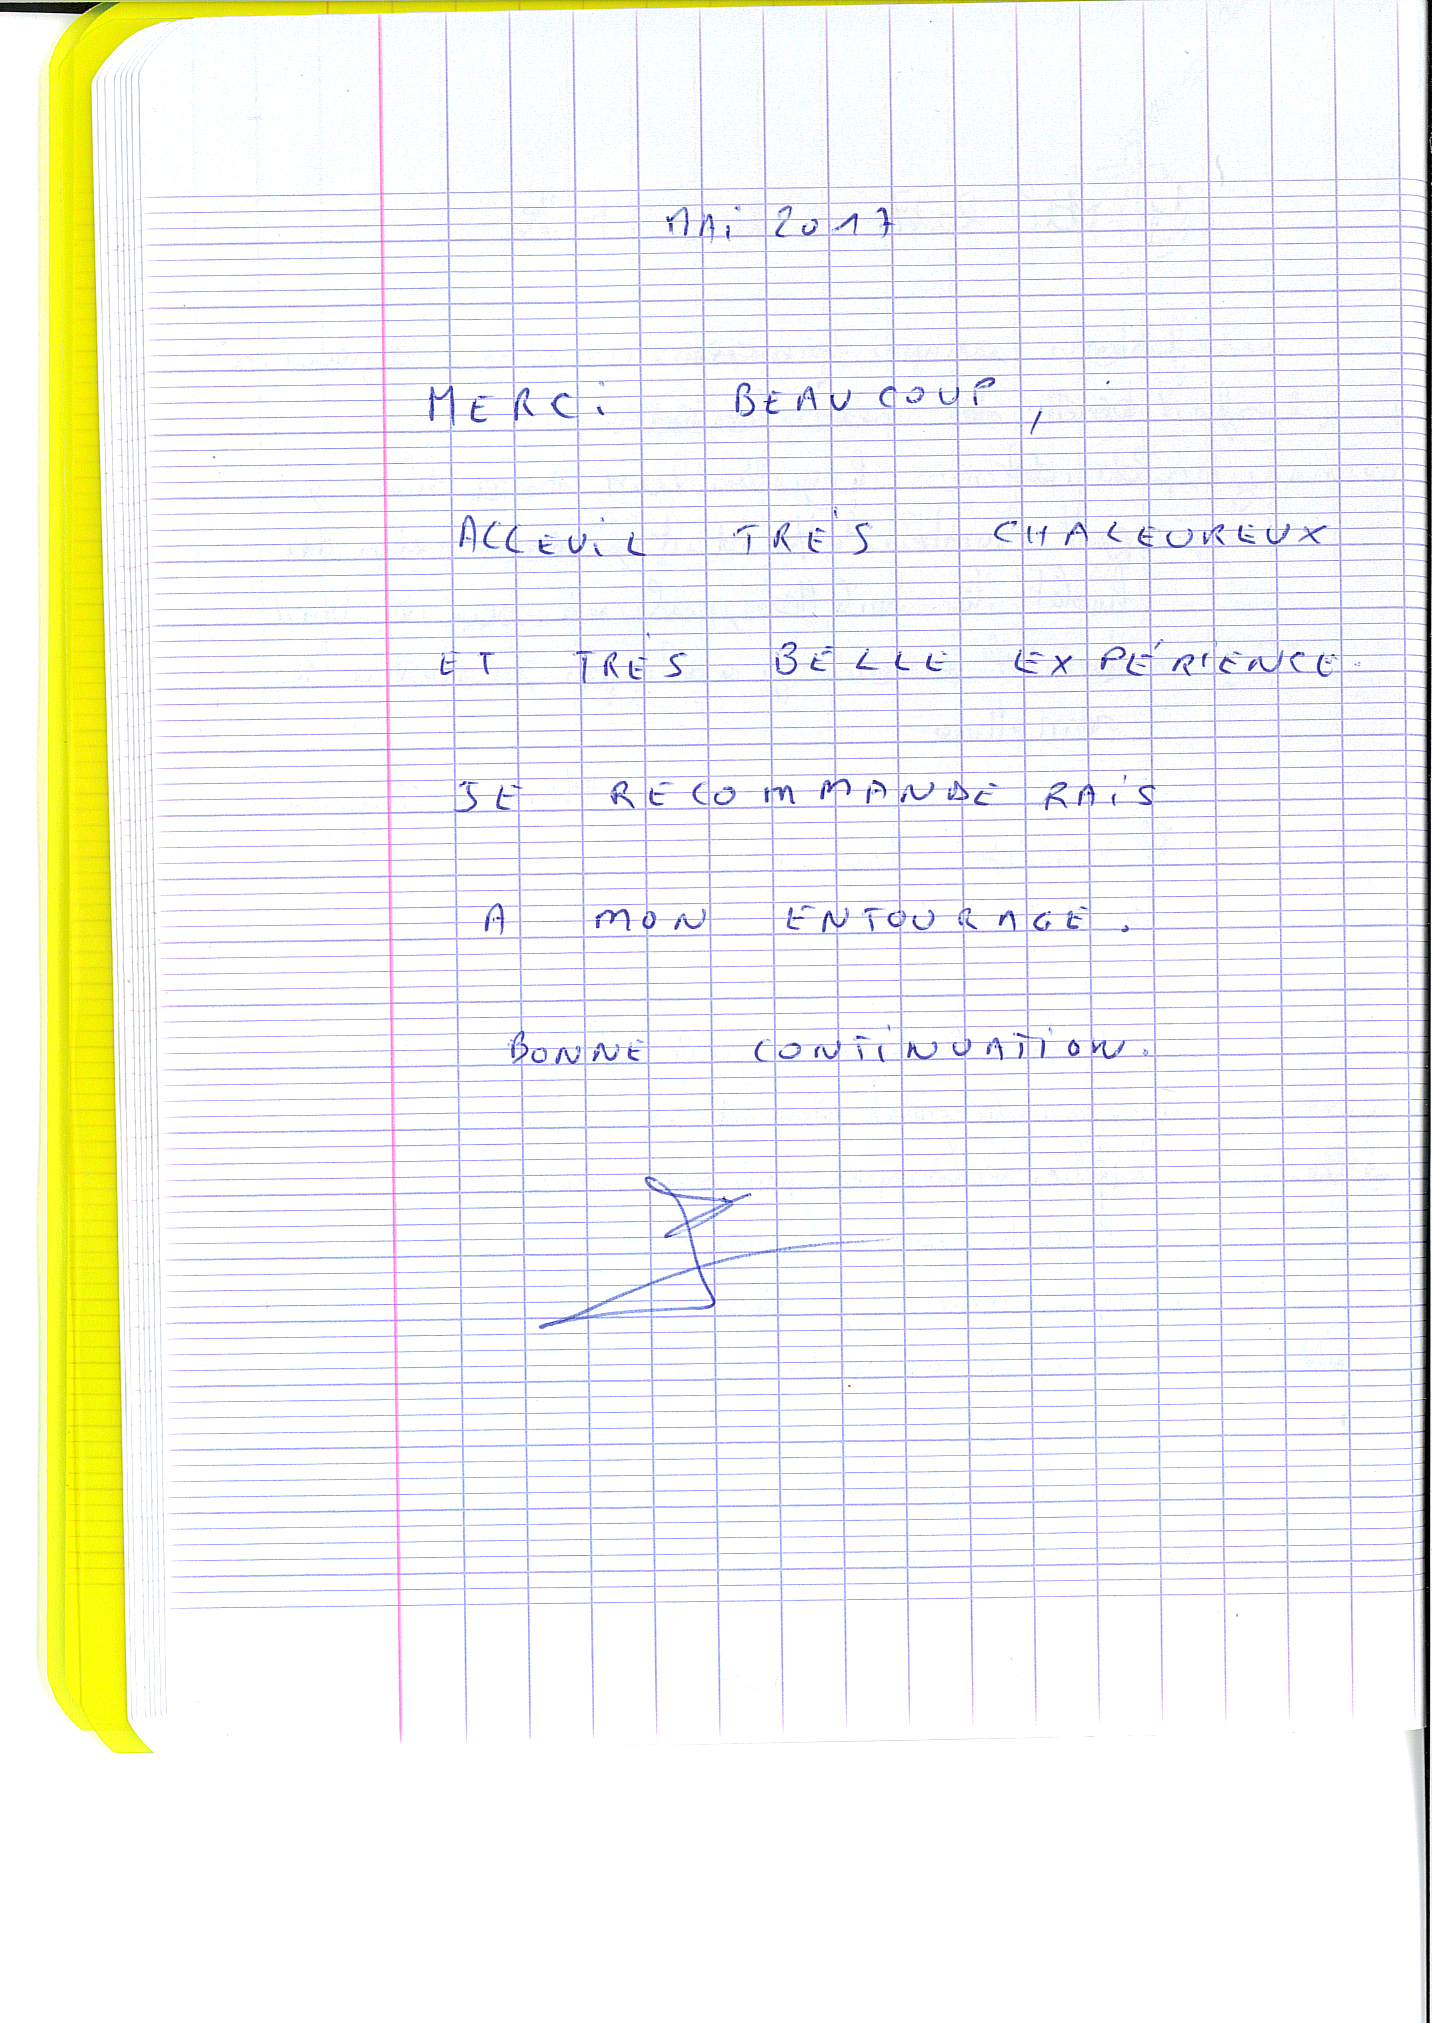 MAi 2017
MERCi BEAUCOUP,
ACCEUiL TRÈS CHALEUREUX
ET TRÈS BELLE EXPÉRIENCE.
JE RECOMMANDERAiS
A MON ENTOURAGE.
BONNE CONTiNUATiON.